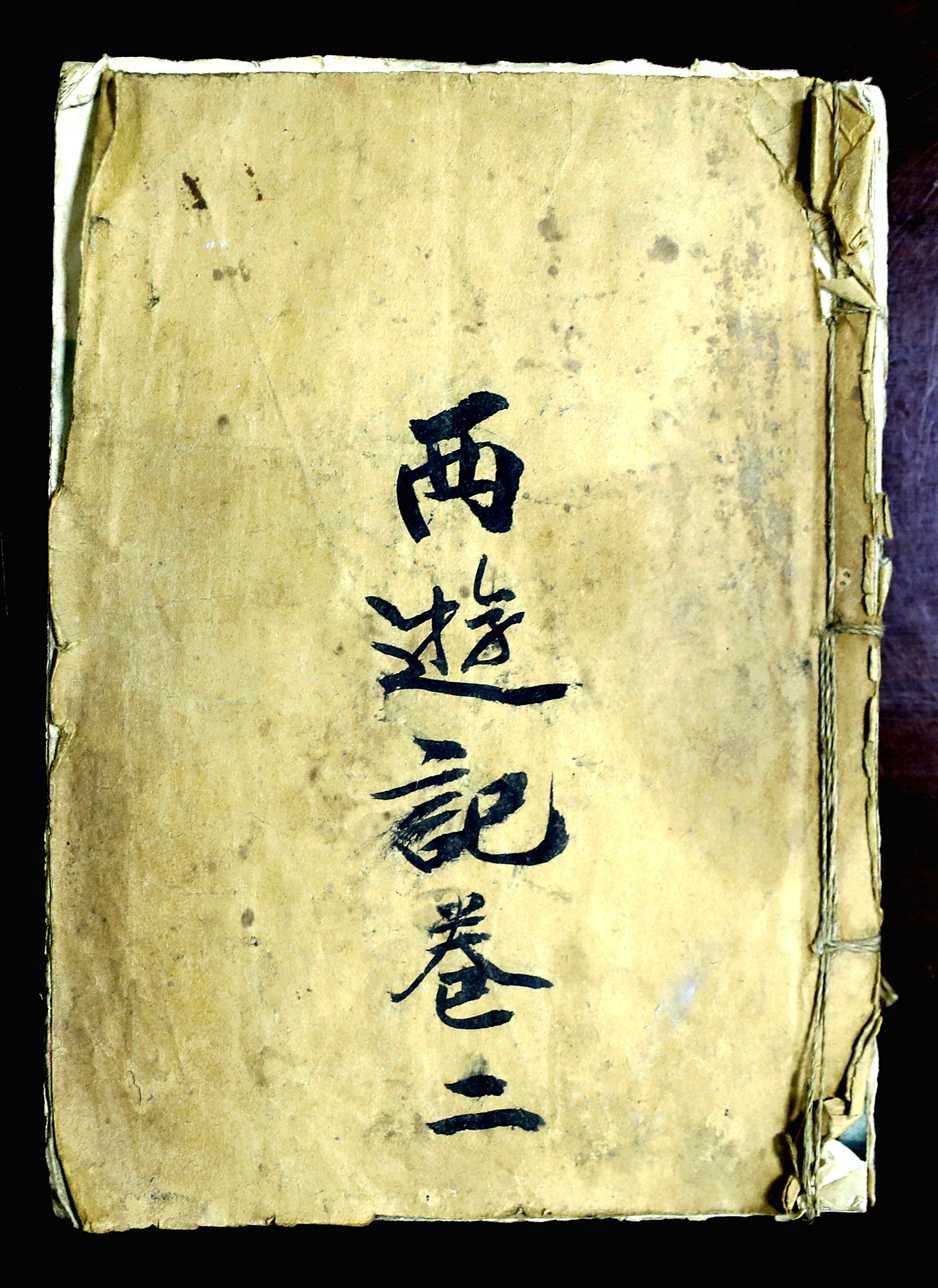 西遊記卷二